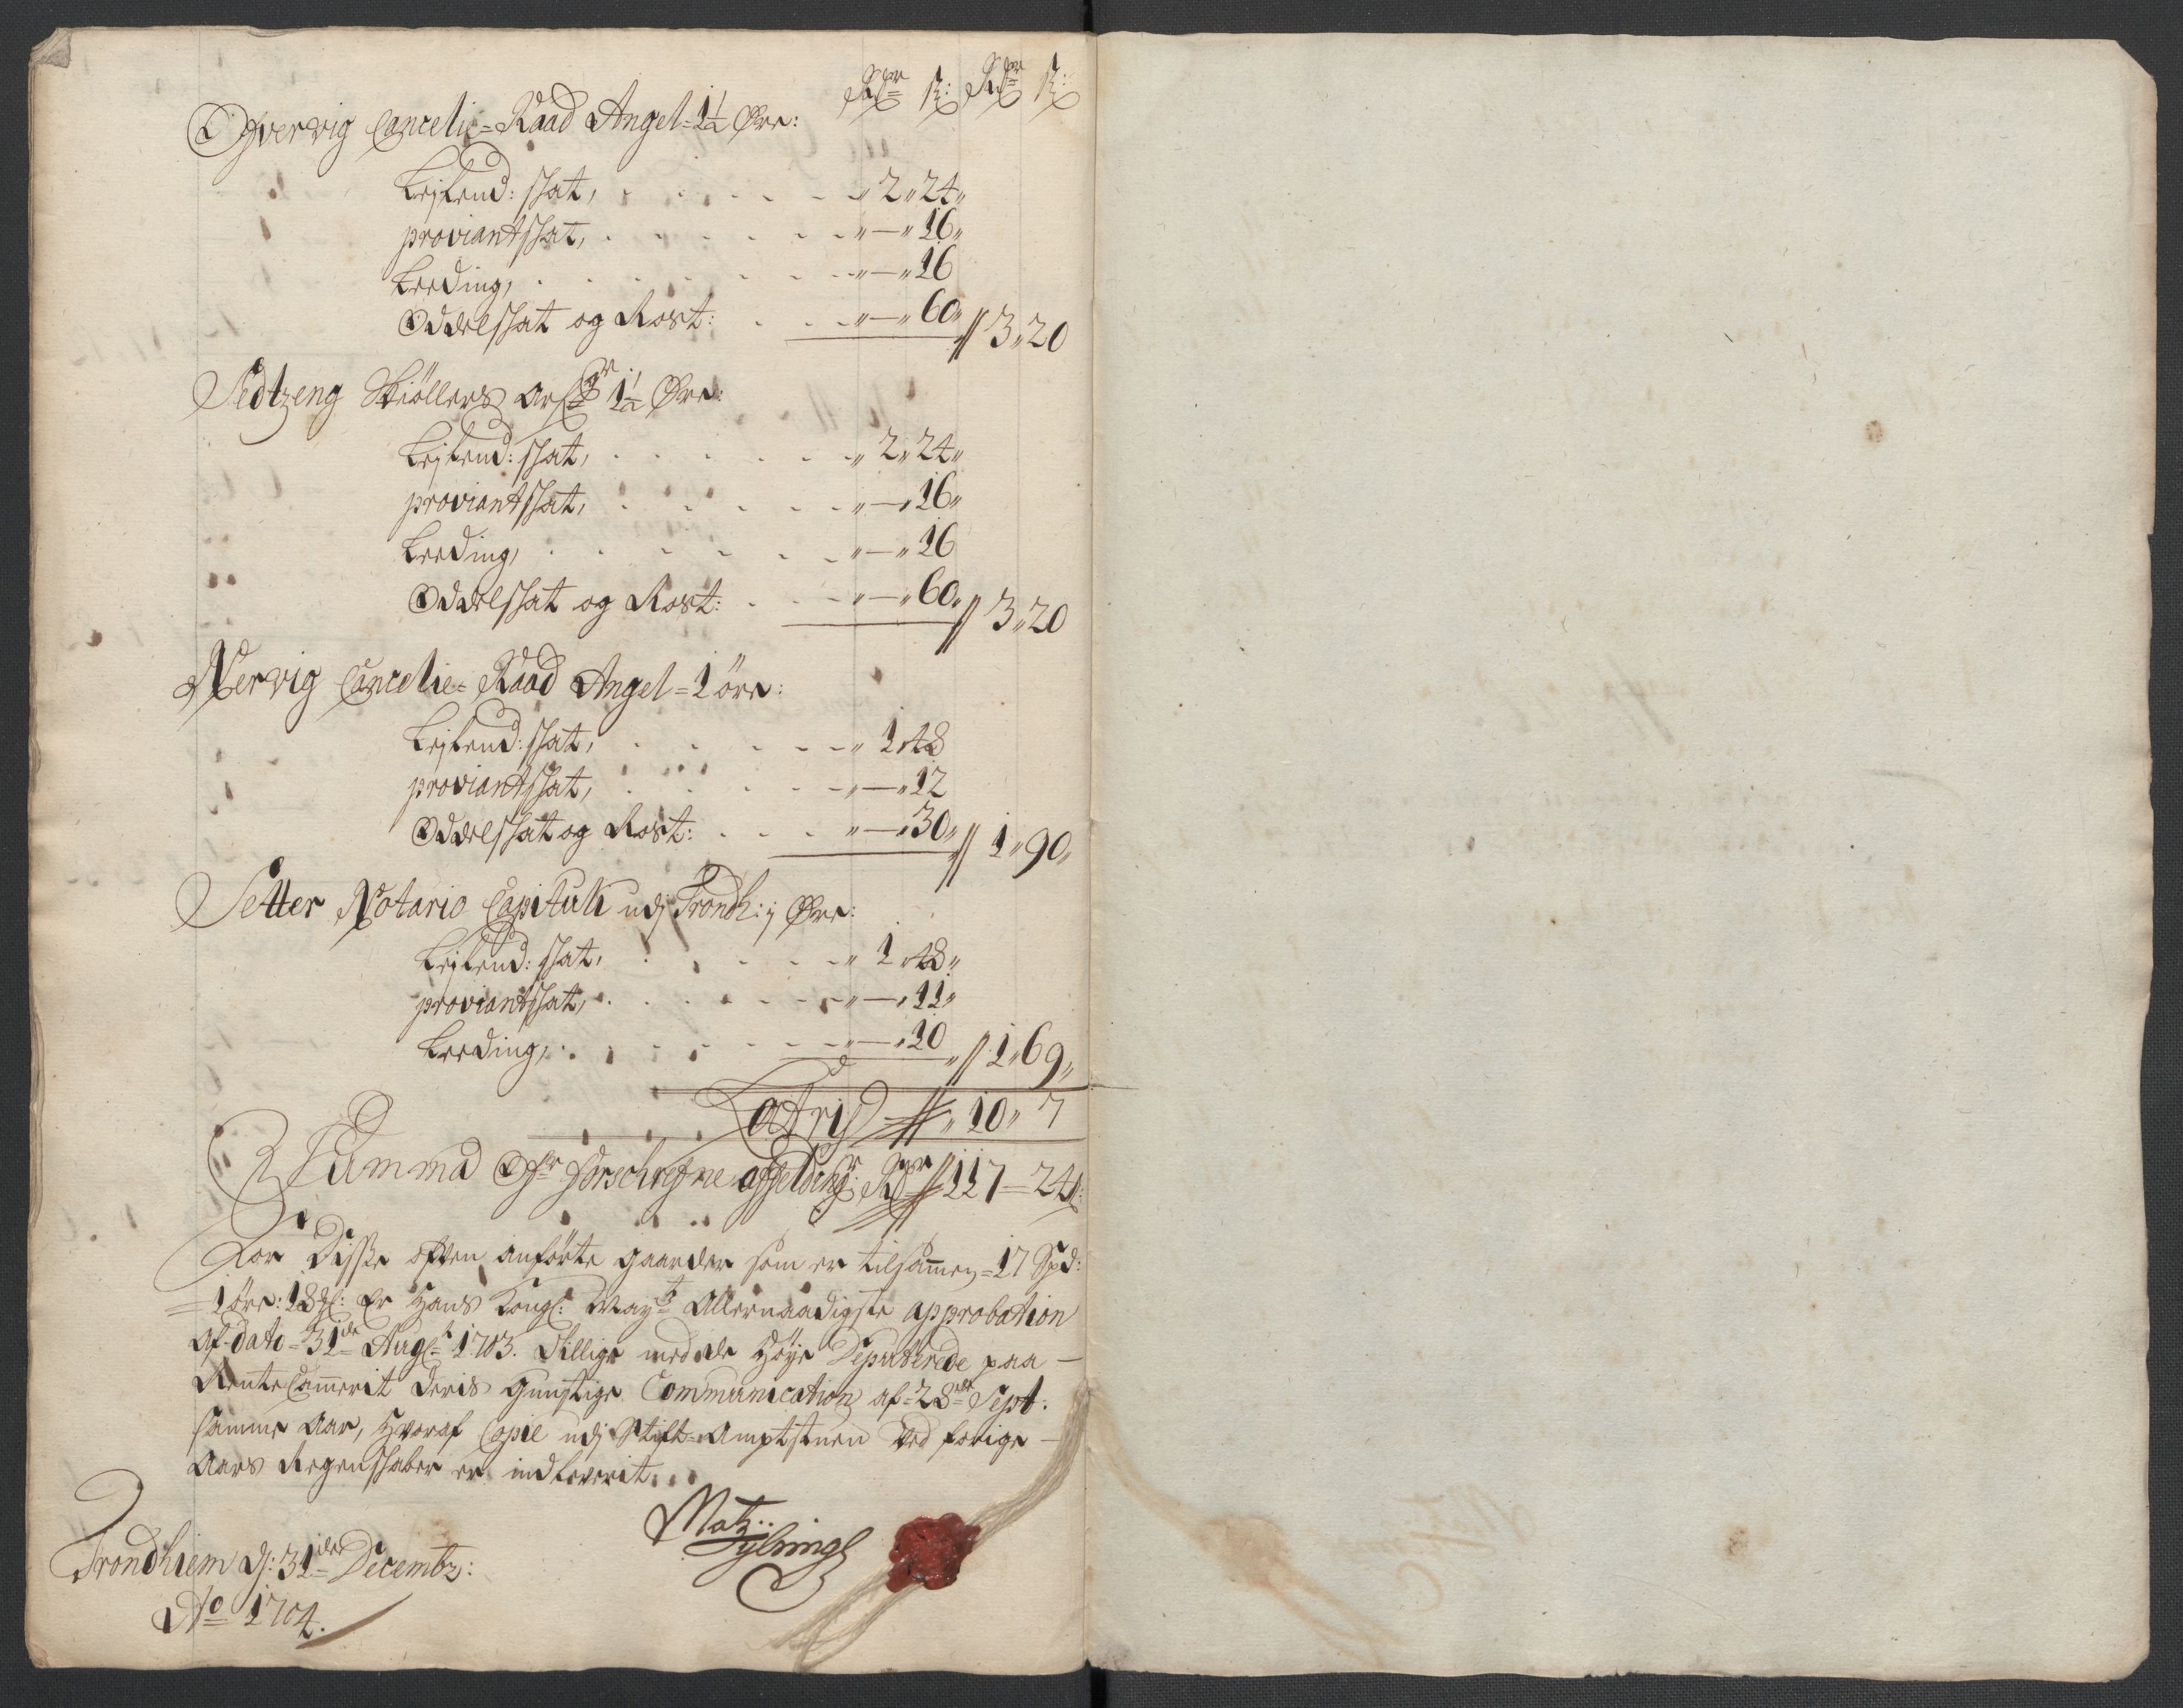 Rdr ß: Rdr ß:
Øfvervig Cancelie=Raad Angel=1½ Øre:
Leylend: skat, „ 2„ 24„
proviantskat, „—„ 16„
Leeding, „—„ 16
Oddelskat og Rost: „—„ 60„ // 3„ 20
Sedtzeng Skiøllers Arfgr 1½ Øre:
Leylend: skat, „ 2„ 24„
proviantskat, „—„ 16„
Leeding, „—„ 16
Oddelskat og Rost: „—„ 60„ // 3„ 20
Nervig Cancelie=Raad Angel=1 öre:
Leylend: skat, „ 1„ 48
proviantskat, „—„ 12
Oddelskat og Rost: „—„ 30„ // 1„ 90„
Setter Notario Capituli udj Trondh: j Øre:
Leylend: skat, „ 1„ 48„
proviantskat, „—„ 11„
Leeding, „—„ 10 „ // 1„ 69„
Latris // „ 10„ 7
Summa forschrefne Rdr // 117 = 24ß:
For Disse ofven anførte gaarder som er tilsamen=17 Spd:
=1 öre: 18 Er Hans Kongl: Mayts Allernaadigste approbation
af dato=31de Augt 1703. Tillige med de Höye Deputerede paa —
RenteCamerit deris gunstige Communication af=28de Sept:
samme Aar, Hvoraf Copie udj Stift=Amptstuen ved forige —
Aars Regenskaber er indleverit.
Trondhiem dj: 31de Decembr:
Ao 1704.
Matz: